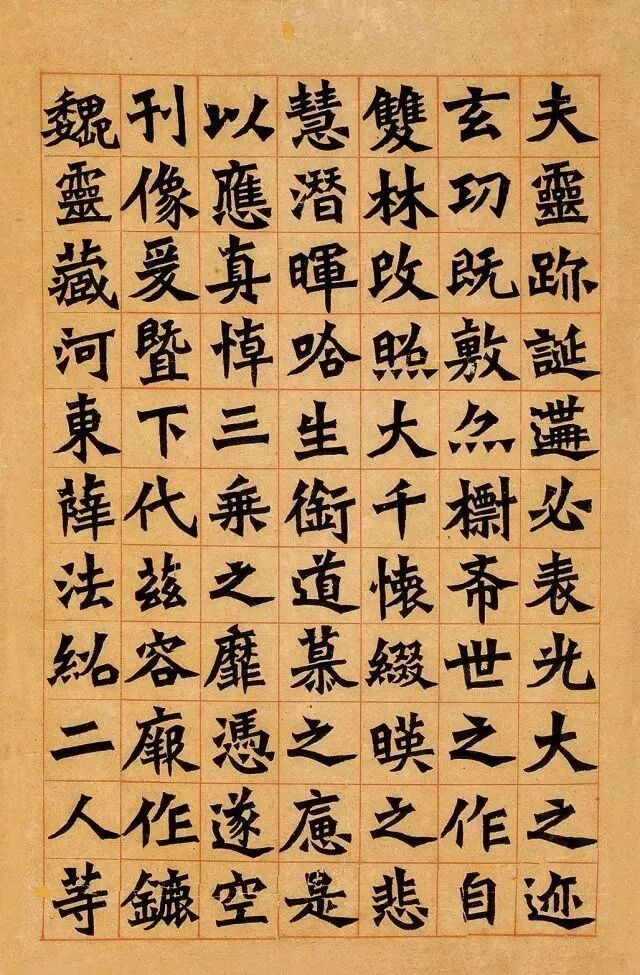 夫靈跡誕遘必表光大之迹
玄功既敷亦標希世之作自
雙林改照大千懷綴暎之悲
慧潛暉唅生銜道慕之應是
以應真悼三乘之靡憑遂空
刊像爰暨下代茲容廓作鑣
魏靈藏河東薛法紹二人等